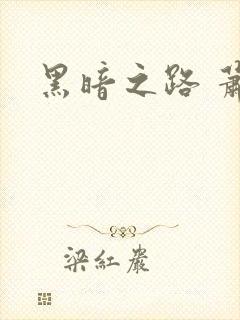 黑暗之路
梁紅嚴